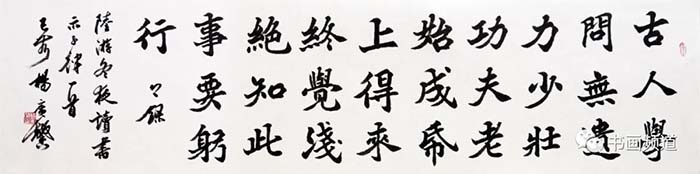 古人學
問無遺
力少壯
功夫老
始成帋
上得來
終覺淺
絕知此
事要躬
行
錄
陸游冬夜讀書
示子律一首
楊廣馨
书画频道